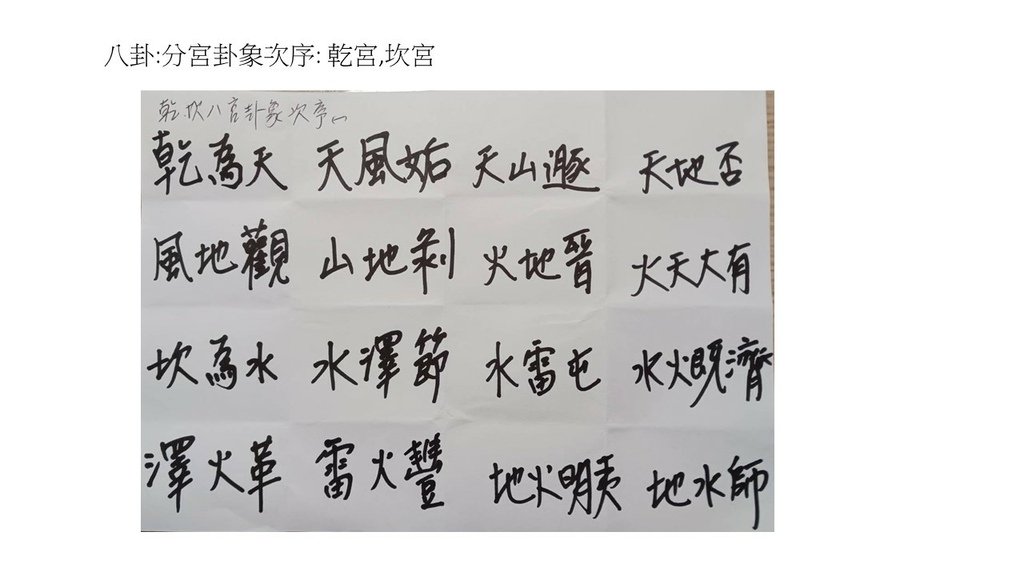 八卦:分宮卦象次序: 乾宮,坎宮
乾.坎八宮卦象次序
乾為天 天風姤 天山遯 天地否
風地觀 山地剝 火地晉 火天大有
坎為水 水澤節 水雷屯 水火既濟
澤火革 雷火豐 地火明夷 地水師